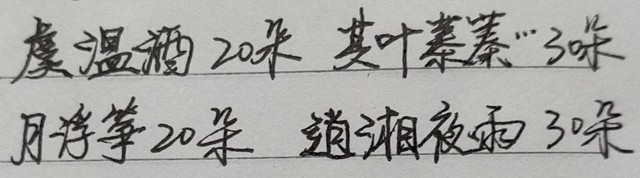 虞温酒 20朵 其叶蓁蓁… 30朵
月浮筝 20朵 潇湘夜雨 30朵